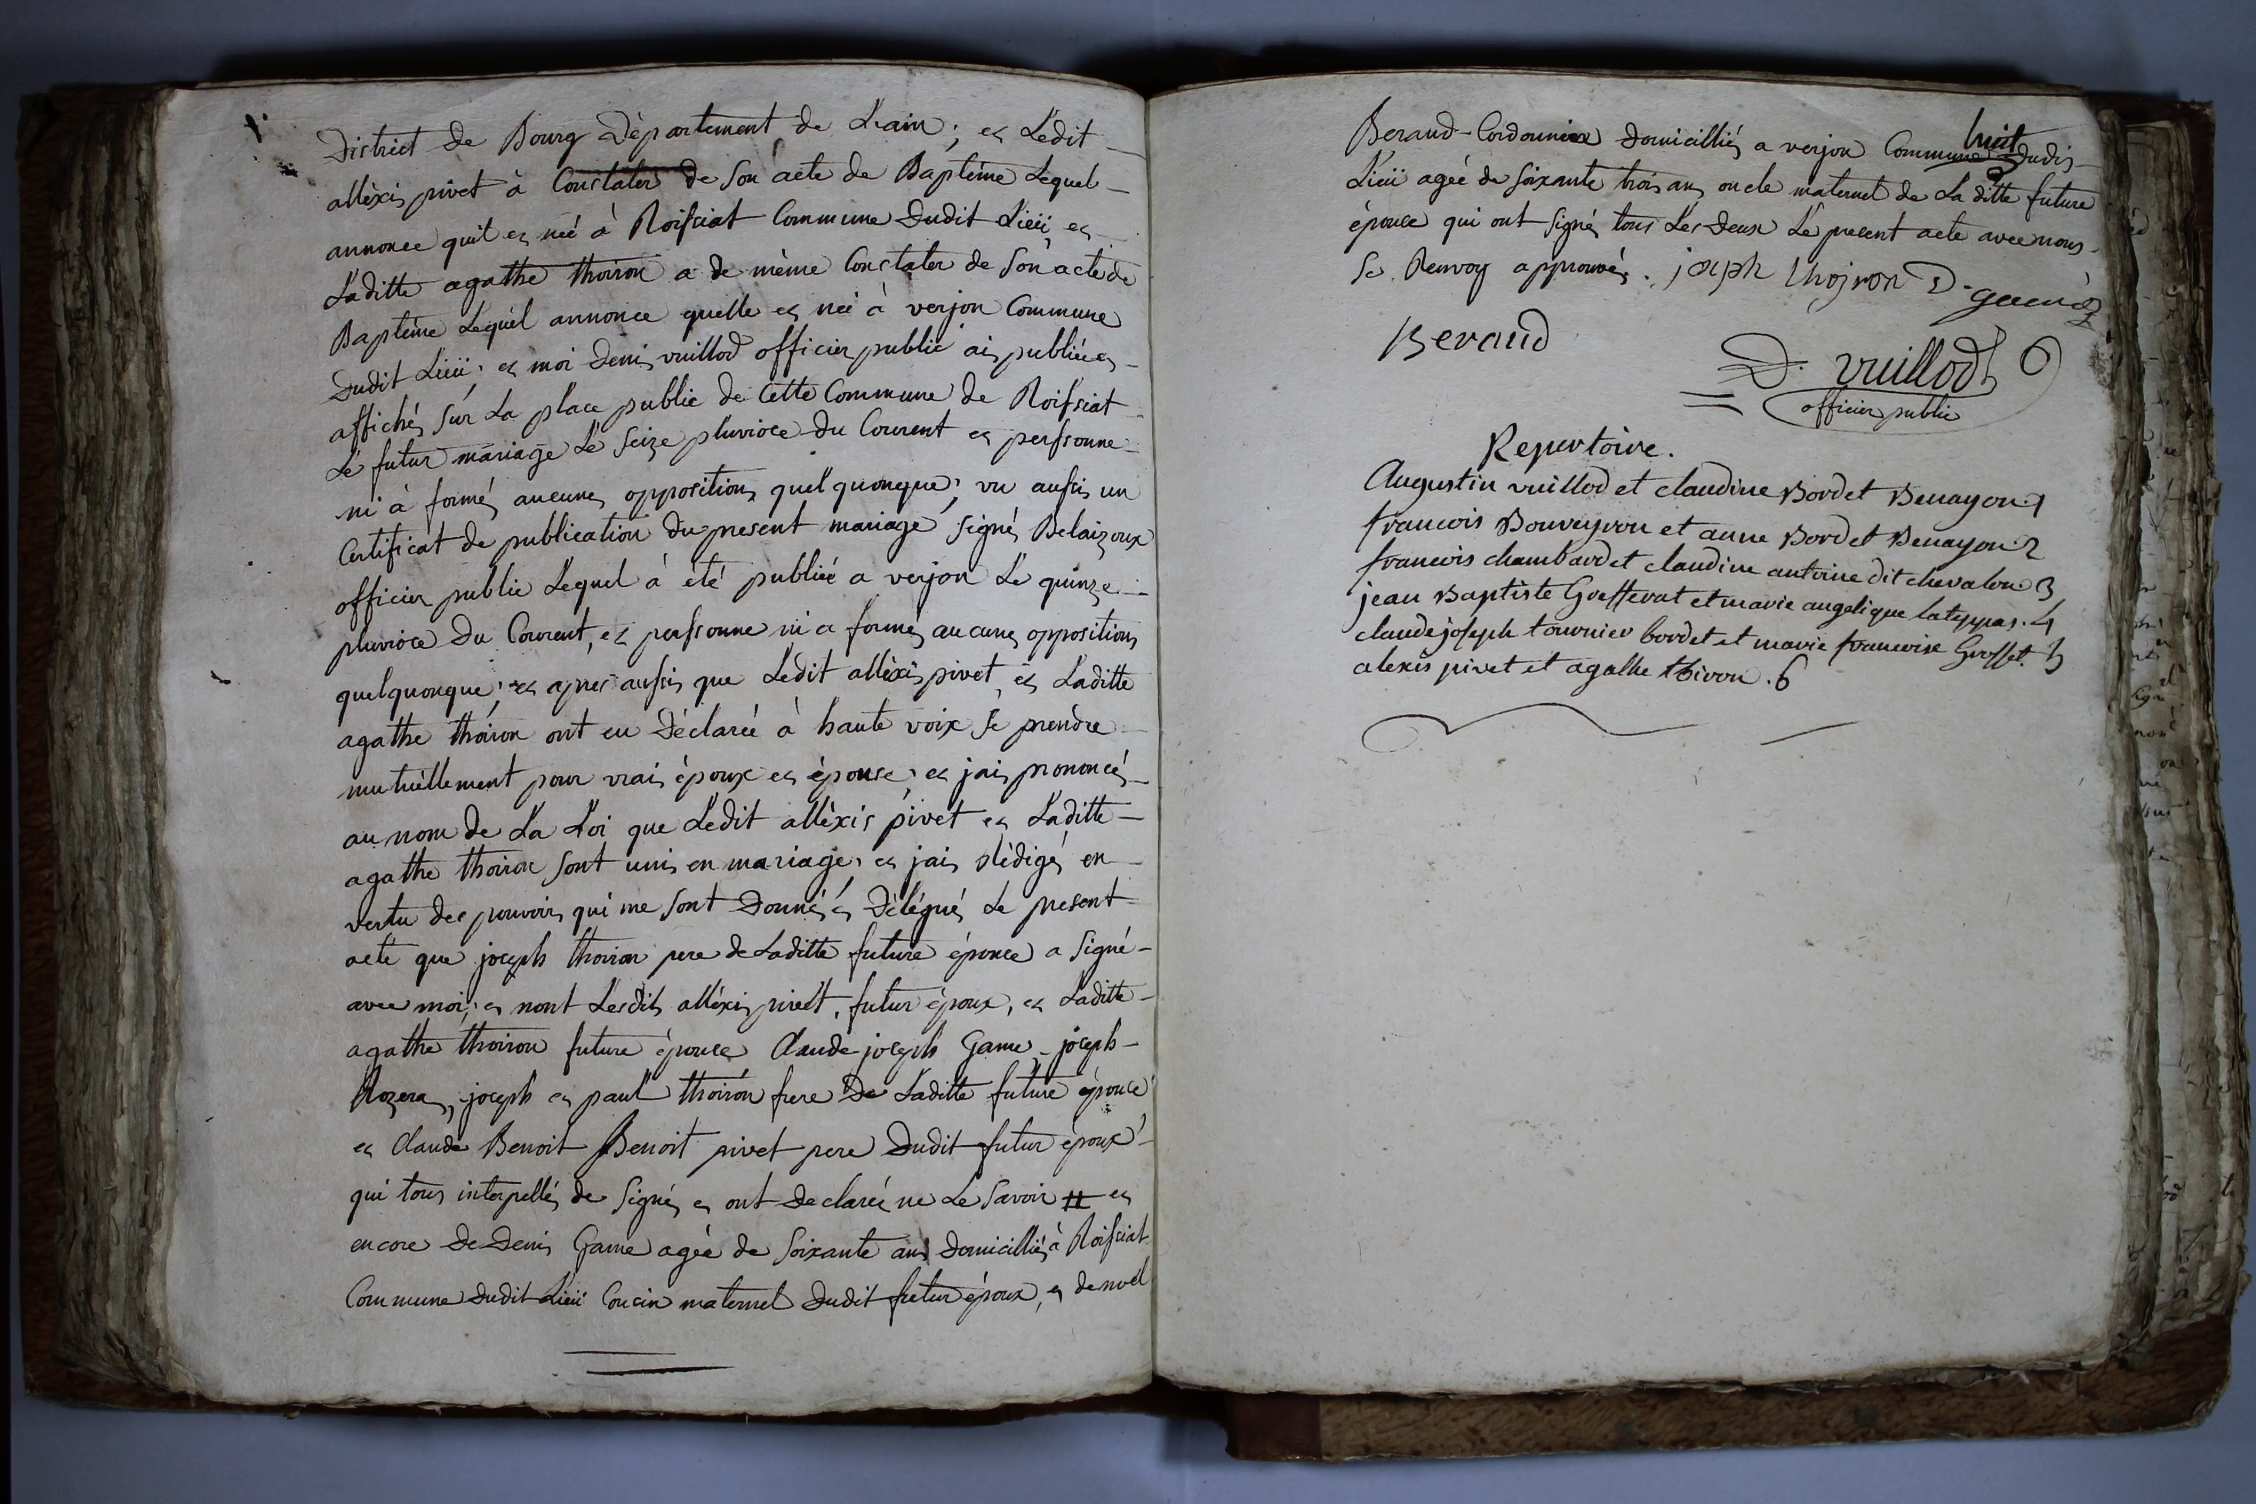 District de Bourg Département de L'ain ; et Lédit
allèxis pivet à Constater de Son acte de Baptéme Lequel
annonce quil et néé à Roissiat Commune Dudit Lieu, et
Laditte agathe thoiron a de mème Constater de Son acte de
Baptème Lequel annonce quelle et néé à verjon Commune
Dudit Lieu ; et moi Deni vuillod officier public ais publiée et
affichés Sur La place public de Cette Commune de Roissiat
Lé futur mariage Lé Seize pluvioce du Courent et perssonne
ni à formés aucunes oppositions quel quonque ; vu aussis un
Certificat de publication du present mariage Signés Belaizoux
officier public Lequel à èté publiéé a verjon Le quinze
pluvioce Du Courent, et perssonne ni a formés aucunes oppositions
quelquonque ; et apres aussis que Lédit allèxis pivet et Laditte
agathe thoiron ont eu Déclaréé à haute voix Se prendre
mutuèllement pour vrais époux et épouse ; et jais prononcés
au nom de La Loi que Lédit allèxis pivet et Laditte
agathe thoiron Sont unis en mariage ; et jais rédigés en
vertu des pouvoirs qui me Sont Donnés et Délégués Le present
acte que joceph thoiron pere de Laditte future épouce a Signé
avec moi ; et nont Lesdits allèxis pivet, futur époux, et Laditte
agathe thoiron future épouce Claude joceph Game, joceph
Rozera, joceph et paul thoiron frere De Laditte future épouce
et Claude Benoit Benoit pivet pere Dudit futur époux
qui tous interpellés de Signés et ont Declaréé ne Le Savoir # et
encore De Denis Game agéé de Soixante ans Domicilliés à Roissiat
Commune Dudit Lieu Coucin maternel Dudit futur époux, et de noël
Beraud Cordonnier Domicilliés a verjon Commune Dudis
huit
Lieu agéé de Soixante trois ans oncle maternel de La ditte future
épouce qui ont Signés tous Les Deux Lé precent acte avec nous
Se Renvoy approuvés. joseph thojron D. game
Beraud
D. vuillod
officier public
Repertoire.
Augustin vuillod et claudine Bordet Benayon 1
francois Bouveyron et anne Bordet Benayon 2
francois chambard et claudine antoine dit chevalon 3
jean Baptiste Greffevat et marie angelique lateppas. 4
claude joseph tournier bordet et marie francoise Grosset. 5
alexis pivet et agathe thiron. 6